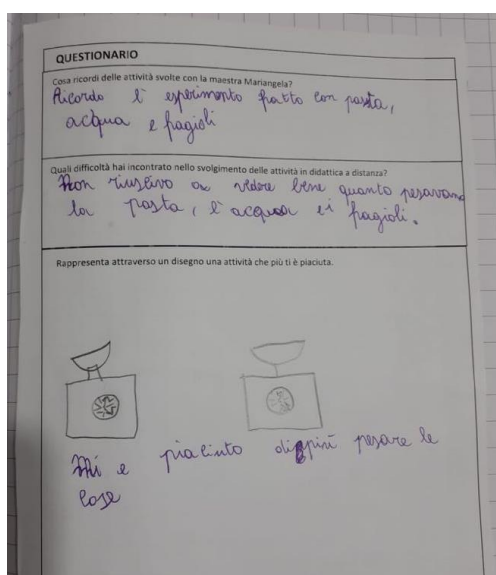 QUESTIONARIO
Cosa ricordi delle attività svolte con la maestra Mariangela?
Ricordo l'esperimento fratto con pasta,
acqua e fragioli
Quali difficoltà hai incontrato nello svolgimento delle attività in didattica a distanza?
Non riuscivo a vedere bene quanto pesavano
la pasta, l'acqua e i fragioli.
Rappresenta attraverso un disegno una attività che più ti è piaciuta.
Mi e piaciuto di più pesare le
cose